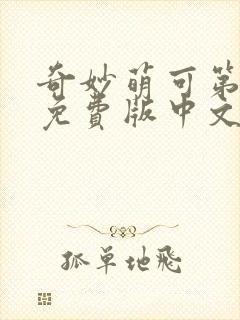 奇妙萌可第
免费版中文
孤单地飛